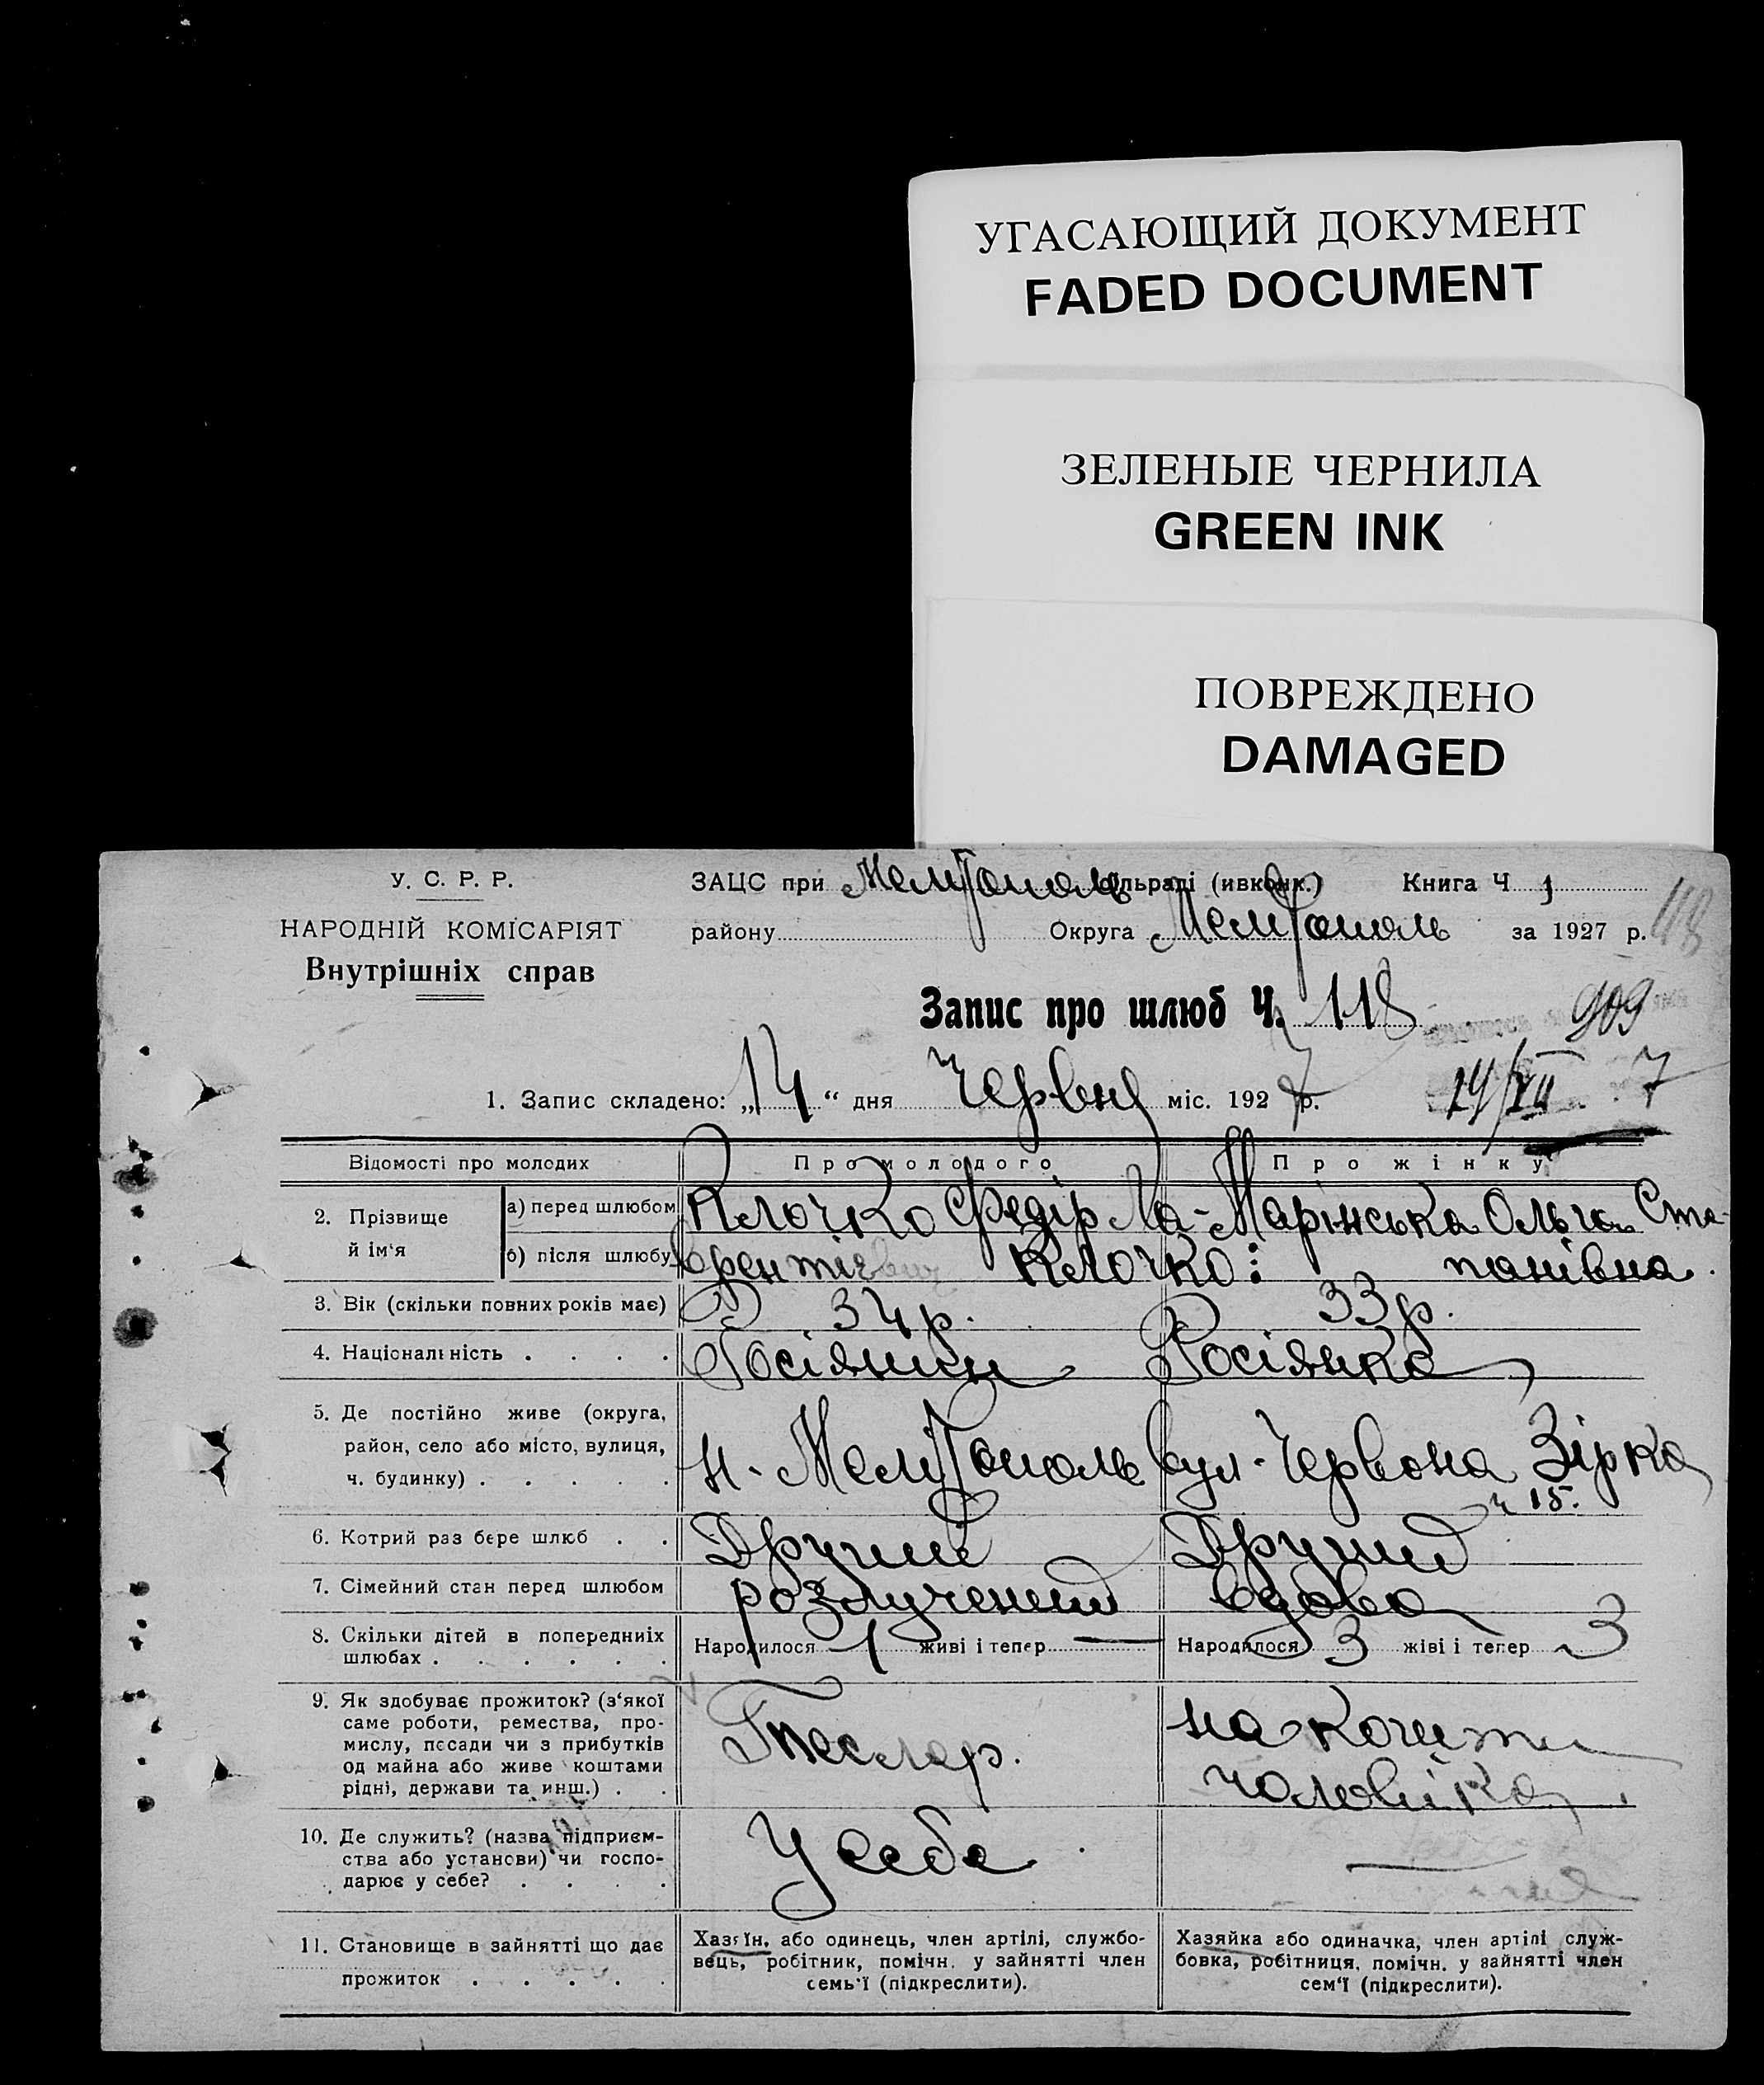 УГАСАЮЩИЙ ДОКУМЕНТ
FADED DOCUMENT
ЗЕЛЕНЫЕ ЧЕРНИЛА
GREEN INK
ПОВРЕЖДЕНО
DAMAGED
У. С. Р. Р.
НАРОДНІЙ КОМІСАРІЯТ
Внутрішніх справ
ЗАЦС при Мелітополь сільраді (ивконк.) Книга Ч
району Округа Мелітополь за 1927 р. 118
Запис про шлюб Ч. 118 909
1. Запис складено: „14“ дня Червня міс. 1927 р. 14/VII 7
Відомості про молодих Про молодого Про жінку
2. Прізвище й ім‘я
а) перед шлюбом Клочко Федір Ла- Марінська Ольга Сте-
б) після шлюбу врентієвич Клочко: панівна.
3. Вік (скільки повних років має) 34 р. 33 р.
4. Національність . . . . Росіянин Росіянка
5. Де постійно живе (округа,
район, село або місто, вулиця,
ч. будинку) . . . . .
м. Мелітополь вул. Червона Зірка
ч 15.
6. Котрий раз бере шлюб . . Другий Другий
7. Сімейний стан перед шлюбом розлучений вдова
8. Скільки дітей в попередниіх
шлюбах . . . . . .
Народилося 1 живі і тепер — Народилося 3 жіві і тепер 3
9. Як здобуває прожиток? (з‘якої
саме роботи, ремества, про-
мислу, посади чи з прибутків
од майна або живе коштами
рідні, держави та инш.) . .
Тесляр.
на кошти
чоловіка.
10. Де служить? (назва підприєм-
ства або установи) чи госпо-
дарює у себе? . . . .
У себе. —
11. Становище в зайнятті що дає
прожиток . . . . .
Хазяїн, або одинець, член артілі, службо-
вець, робітник, помічн. у зайнятті член
семь‘ї (підкреслити).
Хазяйка або одиначка, член артілі служ-
бовка, робітниця, помічн. у зайнятті член
сем‘ї (підкреслити).